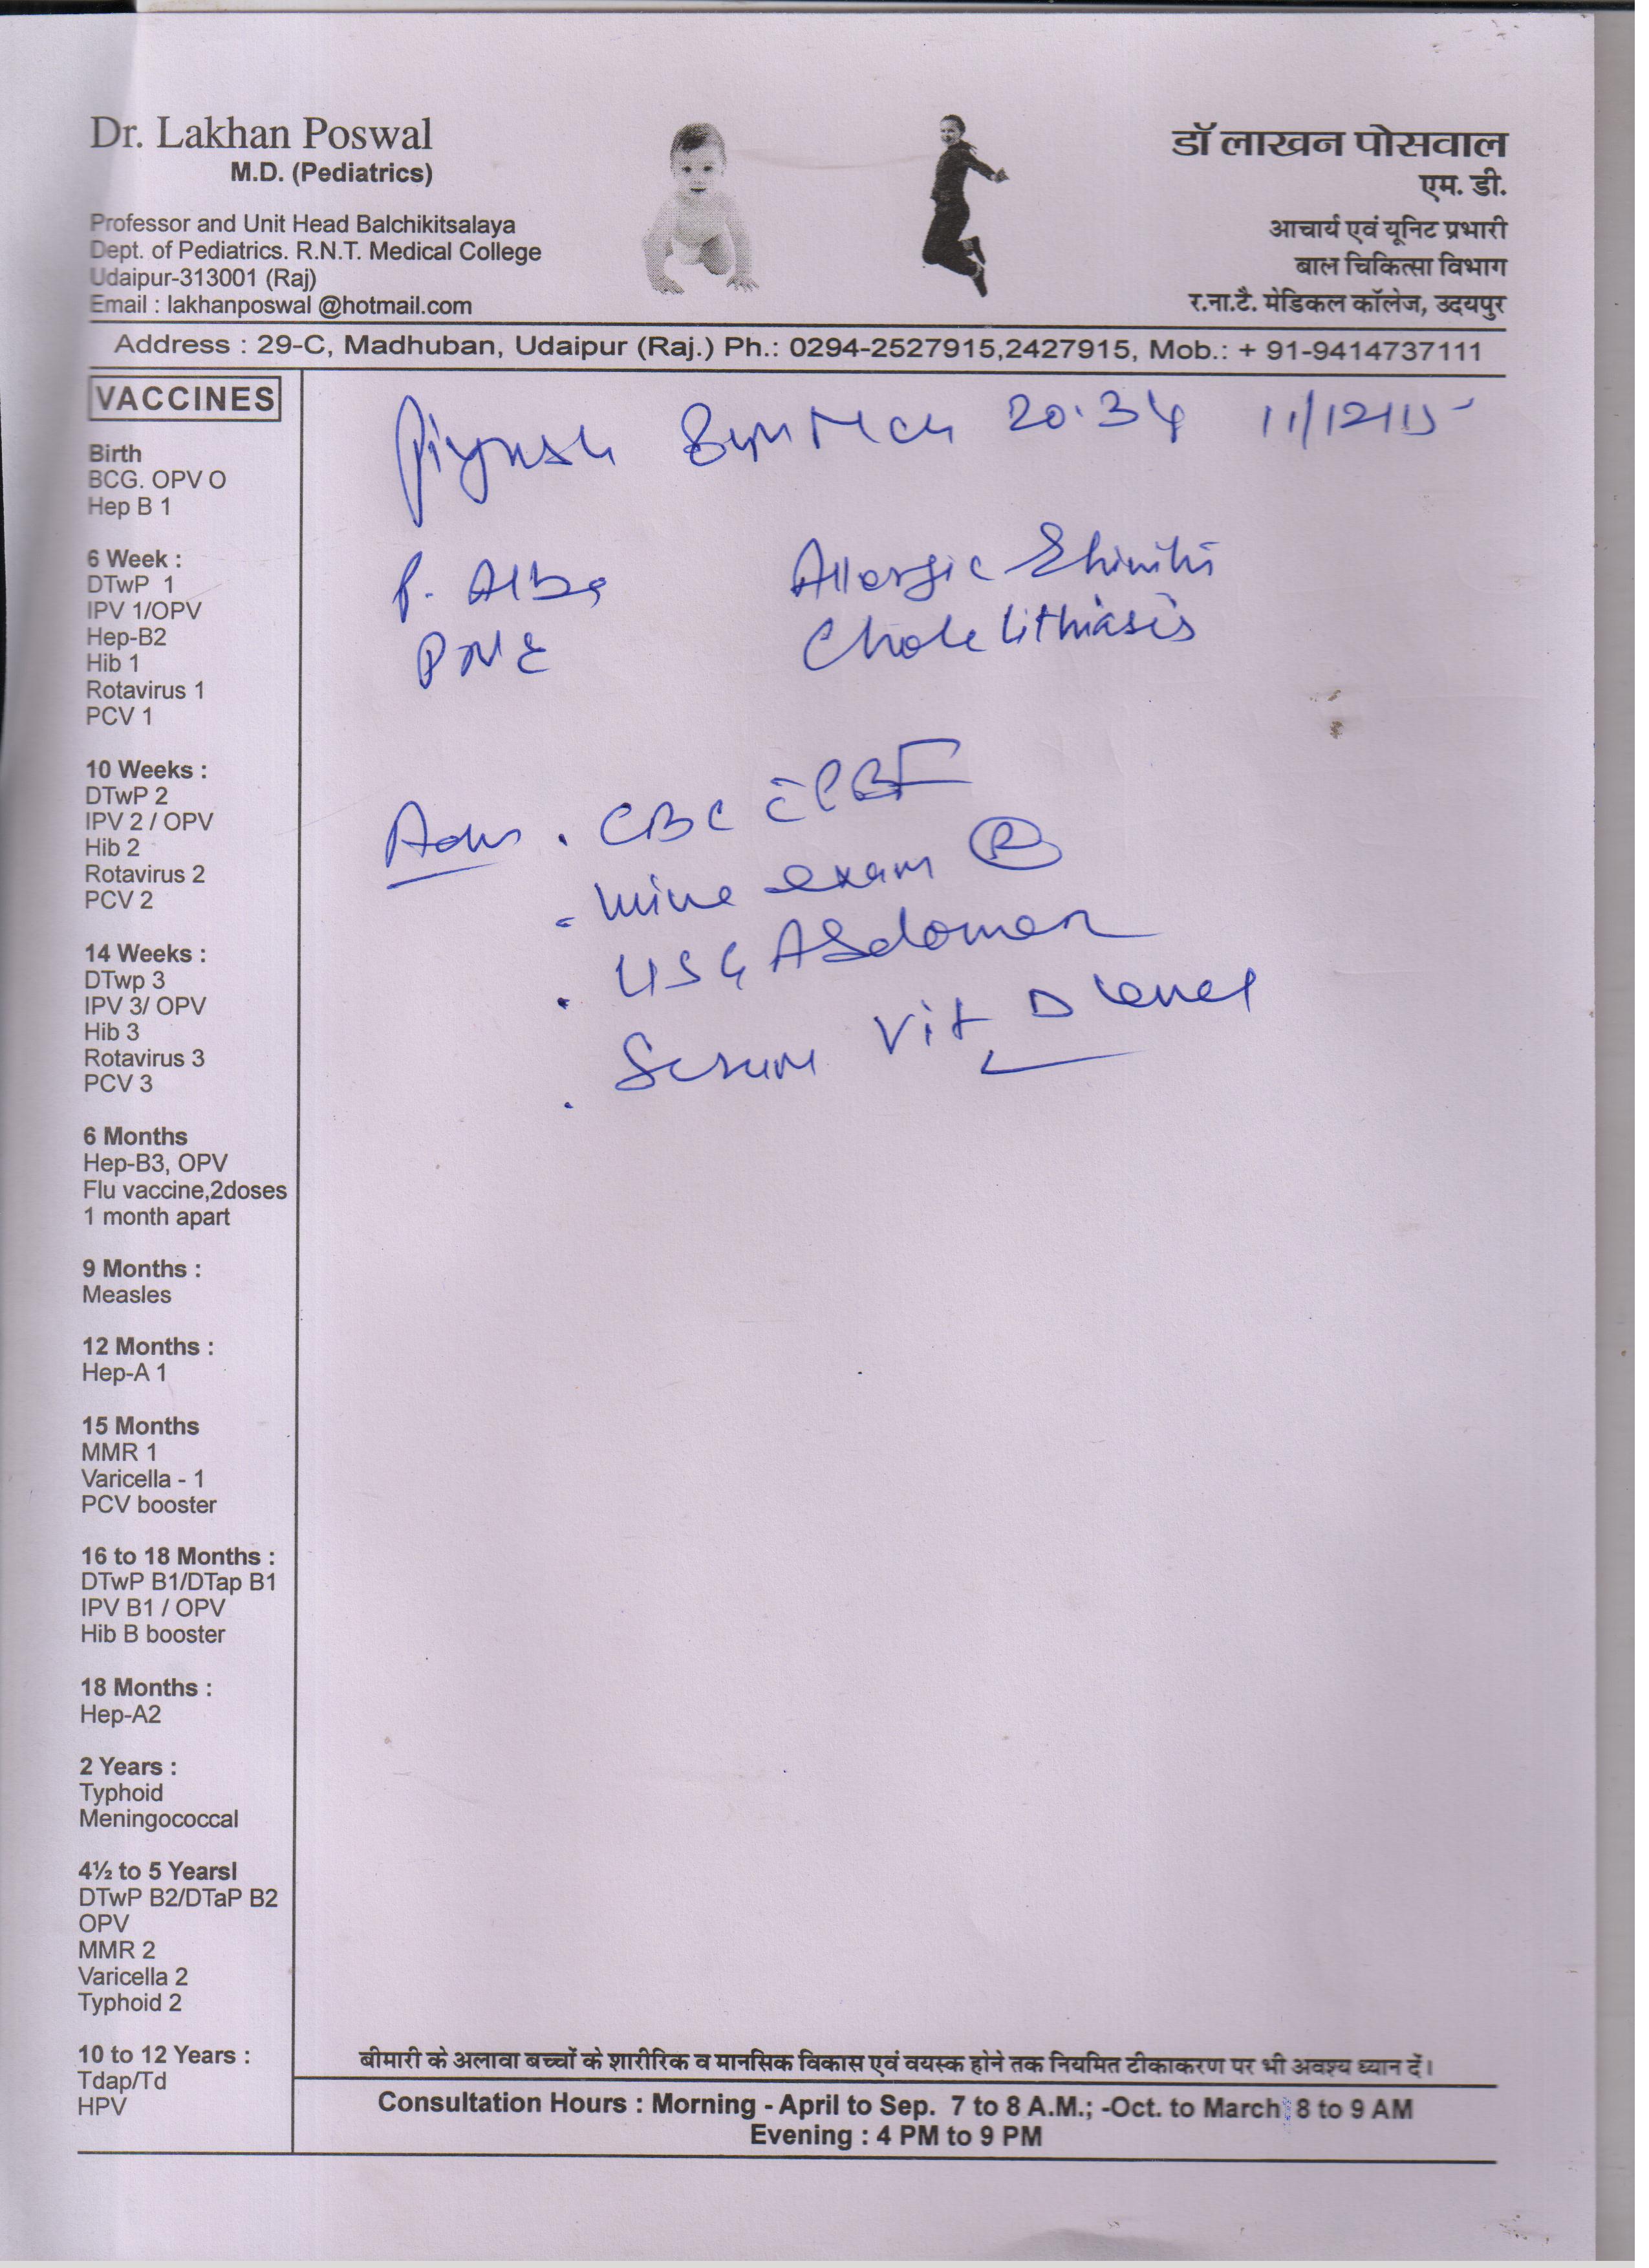 Dr. Lakhan Poswal
M.D. (Pediatrics)
Professor and Unit Head Balchikitsalaya
Dept. of Pediatrics. R.N.T. Medical College
Udaipur-313001 (Raj)
Email : lakhanposwal @hotmail.com
डॉ लाखन पोसवाल
एम. डी.
आचार्य एवं यूनिट प्रभारी
बाल चिकित्सा विभाग
र.ना.टै. मेडिकल कॉलेज, उदयपुर
Address : 29-C, Madhuban, Udaipur (Raj.) Ph.: 0294-2527915,2427915, Mob.: + 91-9414737111
VACCINES
Birth
BCG. OPV O
Hep B 1
6 Week :
DTwP 1
IPV 1/OPV
Hep-B2
Hib 1
Rotavirus 1
PCV 1
10 Weeks :
DTwP 2
IPV 2 / OPV
Hib 2
Rotavirus 2
PCV 2
14 Weeks :
DTwp 3
IPV 3/ OPV
Hib 3
Rotavirus 3
PCV 3
6 Months
Hep-B3, OPV
Flu vaccine,2doses
1 month apart
9 Months :
Measles
12 Months :
Hep-A 1
15 Months
MMR 1
Varicella - 1
PCV booster
16 to 18 Months :
DTwP B1/DTap B1
IPV B1 / OPV
Hib B booster
18 Months :
Hep-A2
2 Years :
Typhoid
Meningococcal
4½ to 5 Yearsl
DTwP B2/DTaP B2
OPV
MMR 2
Varicella 2
Typhoid 2
10 to 12 Years :
Tdap/Td
HPV
Piyush 20.34 11/12/15
P. Alba Allergic Rhinitis
PNE Cholelithiasis
Adv . CBC c̄ PBF
. Urine exam (R)
. USG Abdomen
. Serum Vit D level
बीमारी के अलावा बच्चों के शारीरिक व मानसिक विकास एवं वयस्क होने तक नियमित टीकाकरण पर भी अवश्य ध्यान दें।
Consultation Hours : Morning - April to Sep. 7 to 8 A.M.; -Oct. to March 8 to 9 AM
Evening : 4 PM to 9 PM